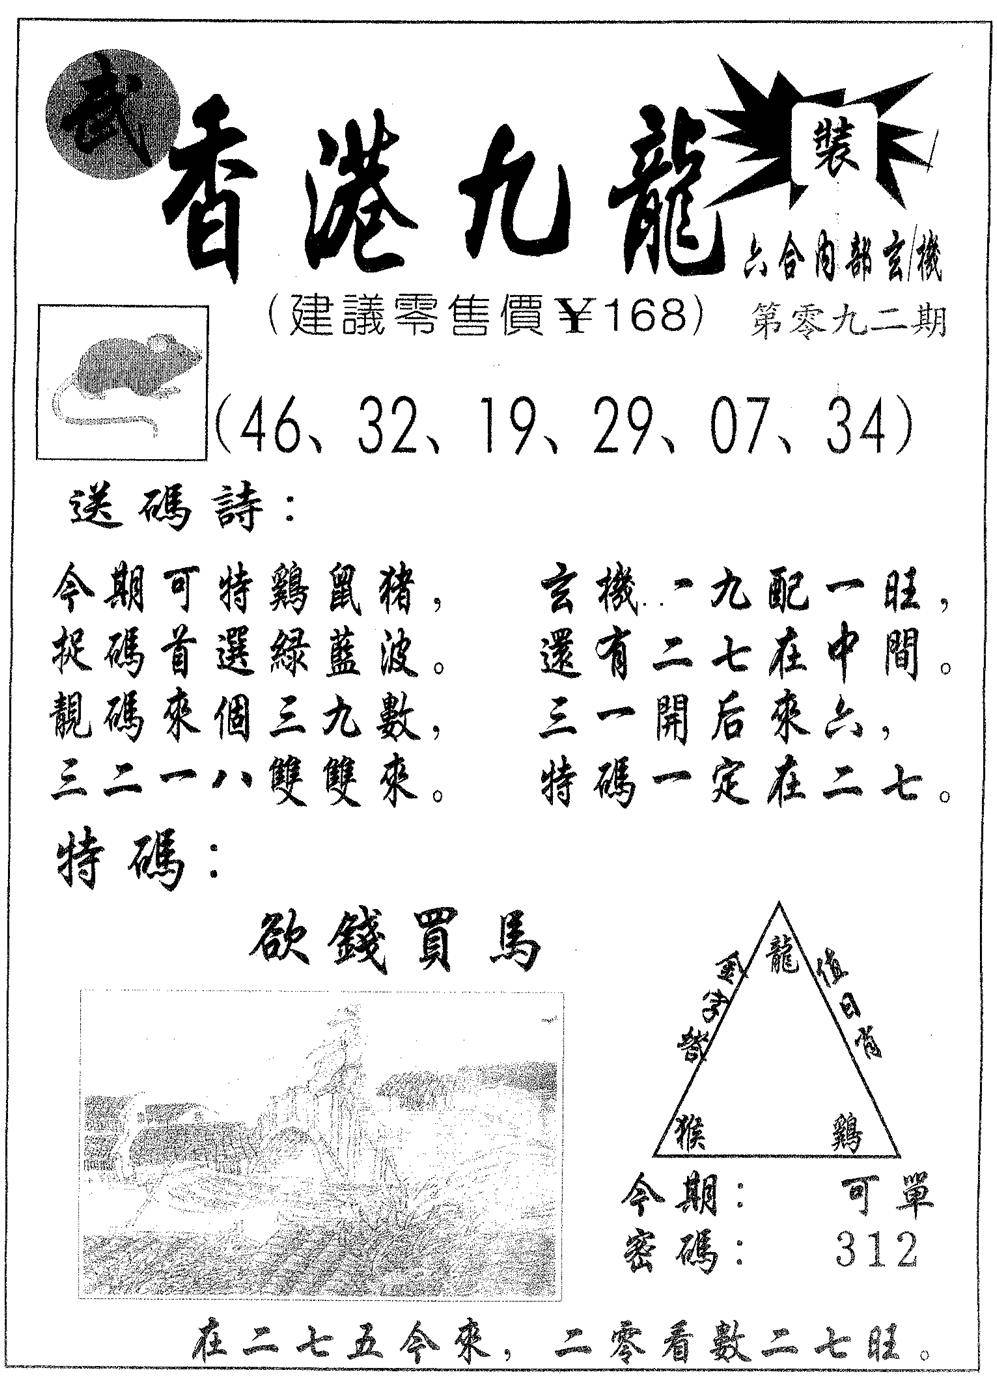 武
香港九龍
裝
六合內部玄機
(建議零售價¥168)
第零九二期
(46、32、19、29、07、34)
送碼詩：
今期可特鷄鼠猪，
捉碼首選綠藍波。
靚碼來個三九數，
三二一八雙雙來。
玄機..一九配一旺，
還有二七在中間。
三一開后來六，
特碼一定在二七。
特碼：
欲錢買馬
龍
金字塔
值日肖
猴
鷄
今期：可單
密碼：312
在二七五今來，二零看數二七旺。